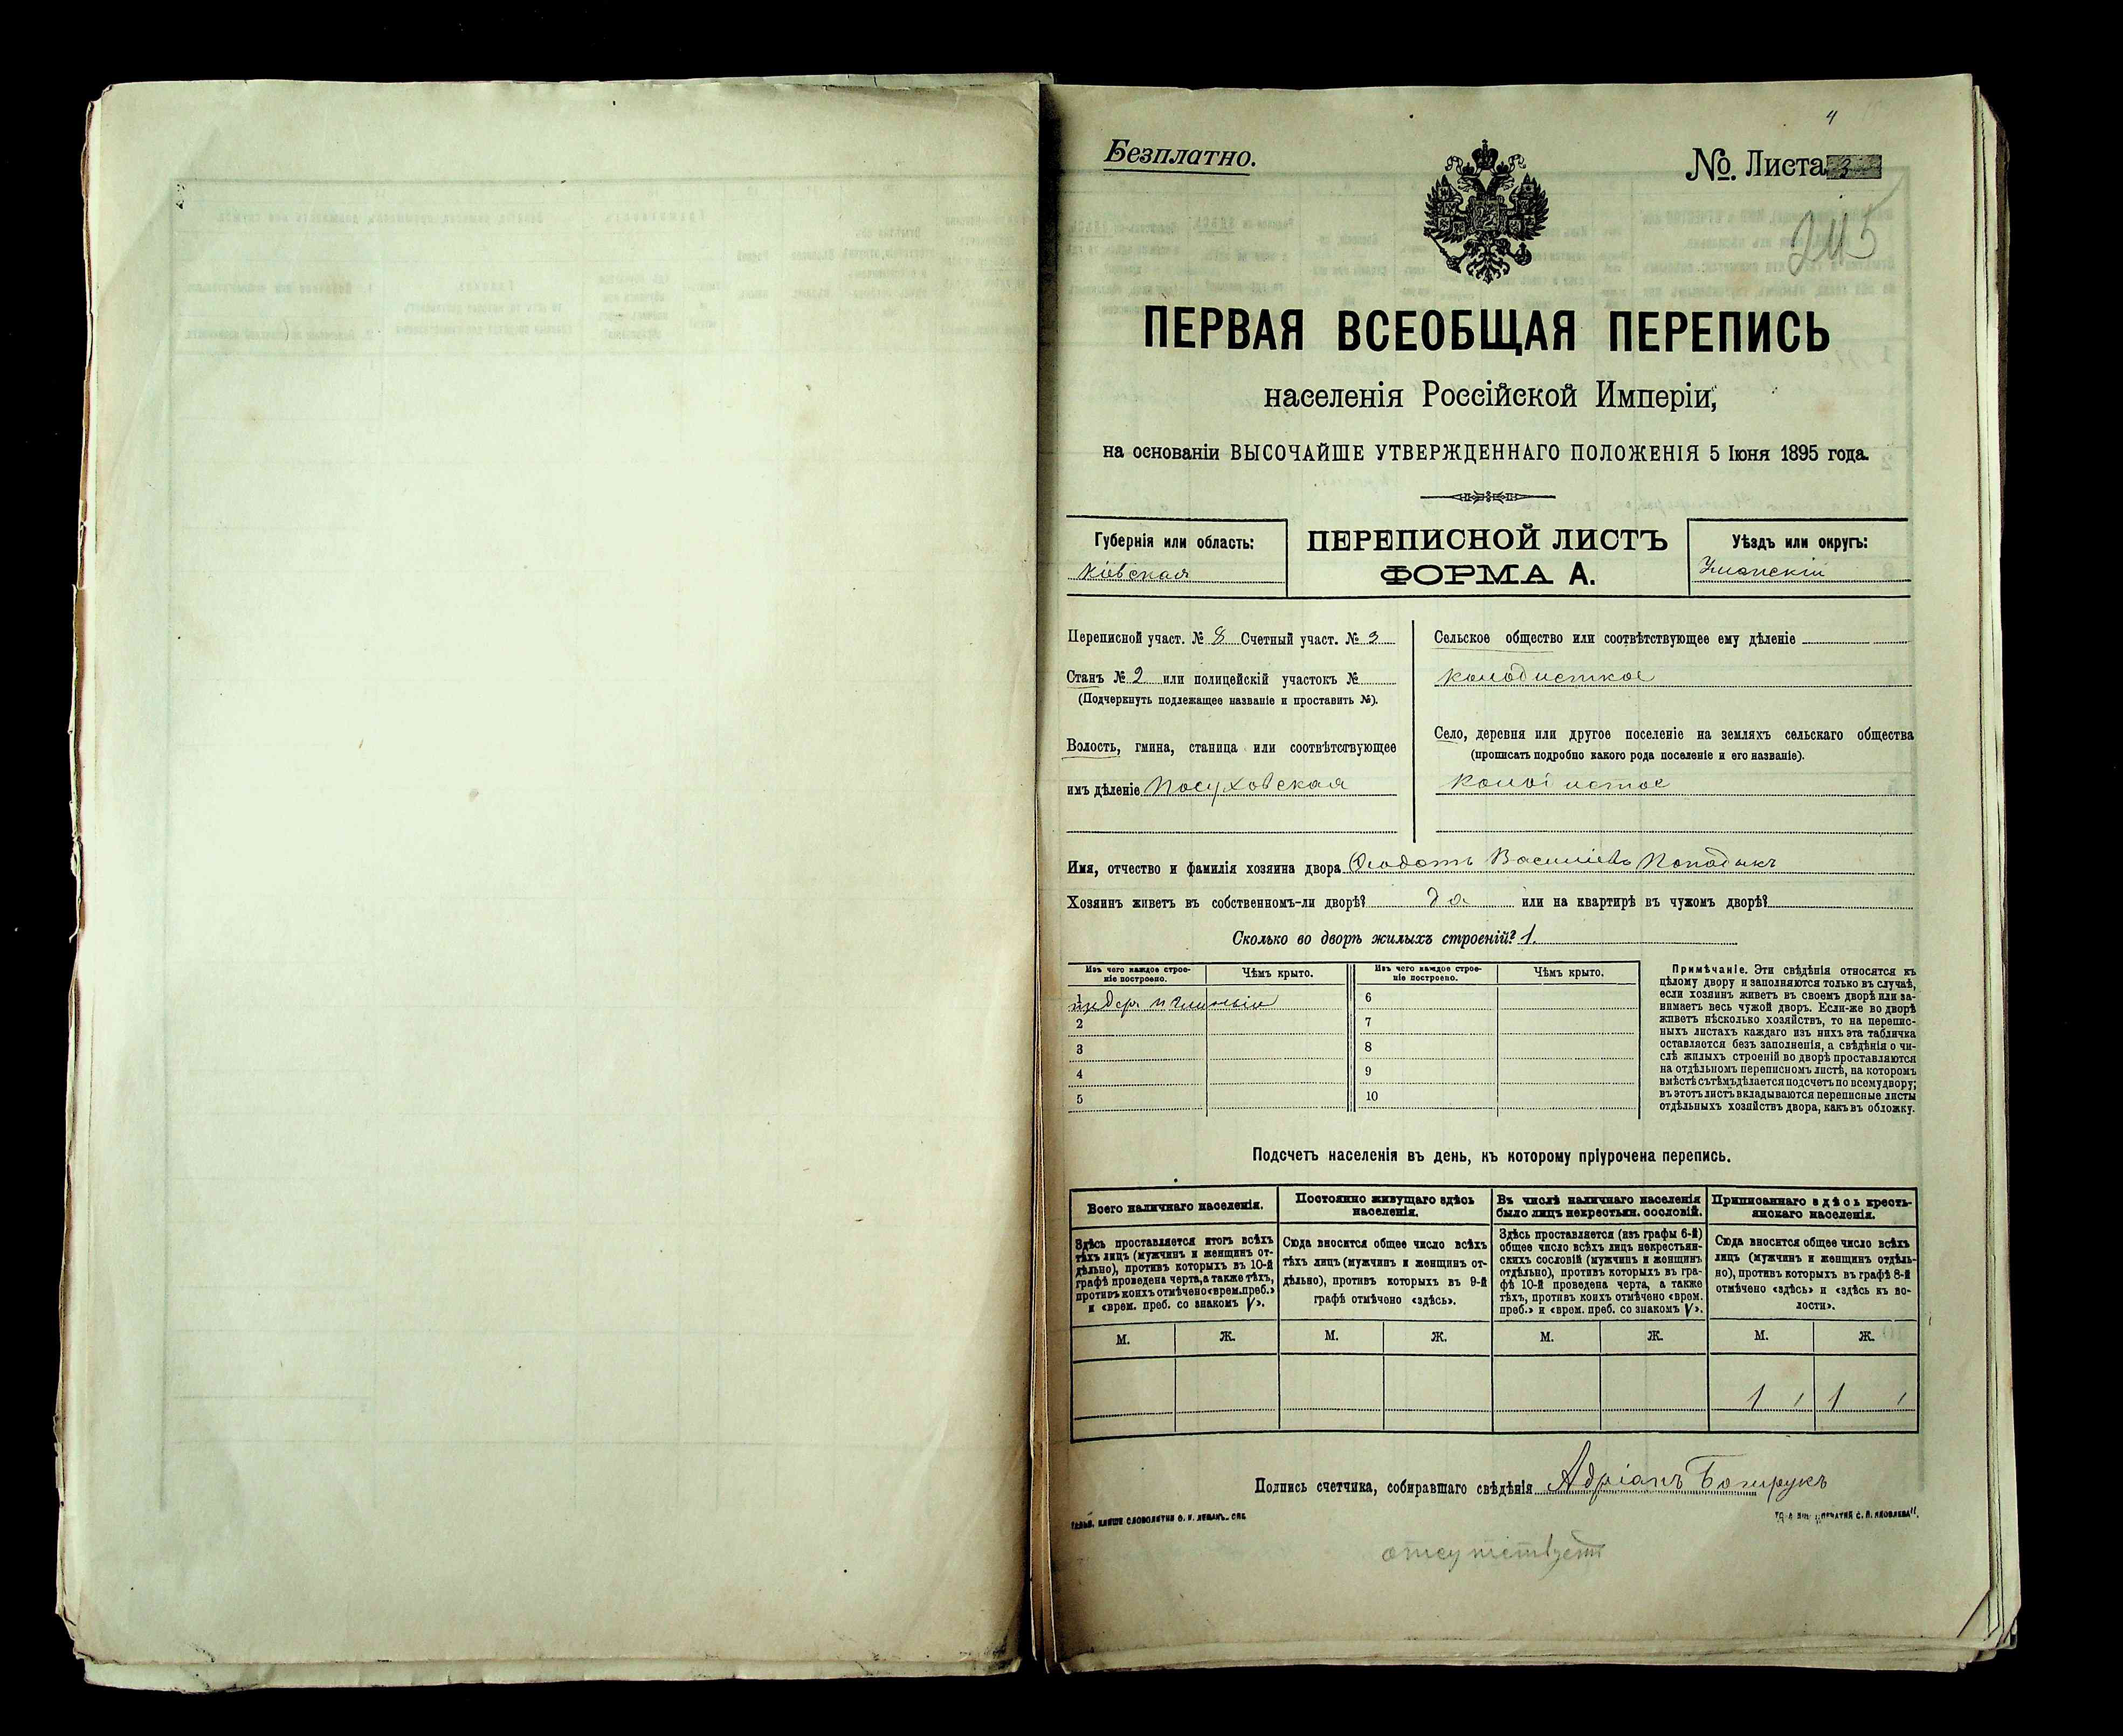 4
Безплатно.
№. Листа 3
245
ПЕРВАЯ ВСЕОБЩАЯ ПЕРЕПИСЬ
населенія Россійской Имперіи,
на основаніи ВЫСОЧАЙШЕ УТВЕРЖДЕННАГО ПОЛОЖЕНІЯ 5 Іюня 1895 года.
Губернія или область:
Кіевская
ПЕРЕПИСНОЙ ЛИСТЪ
ФОРМА А.
Уѣздъ или округъ:
Уманскій
Переписной участ. № 8 Счетный участ. № 3
Станъ № 2 или полицейскій участокъ №
(Подчеркнуть подлежащее названіе и проставить №).
Волость, гмина, станица или соотвѣтствующее
имъ дѣленіе Посуховская
Сельское общество или соотвѣтствующее ему дѣленіе
Колодисткое
Село, деревня или другое поселеніе на земляхъ сельскаго общества
(прописать подробно какого рода поселеніе и его названіе).
Имя, отчество и фамилія хозяина двора Феодотъ Василіевъ
Хозяинъ живетъ въ собственномъ-ли дворѣ? да или на квартирѣ въ чужомъ дворѣ?
Сколько во дворѣ жилыхъ строеній? 1.
Изъ чего каждое строе-
ніе построено.
Чѣмъ крыто.
Изъ чего каждое строе-
ніе построено.
Чѣмъ крыто.
1
2
3
4
5
6
7
8
9
10
Примѣчаніе. Эти свѣдѣнія относятся къ
цѣлому двору и заполняются только въ случаѣ,
если хозяинъ живетъ въ своемъ дворѣ или за-
нимаетъ весь чужой дворъ. Если-же во дворѣ
живетъ нѣсколько хозяйствъ, то на перепис-
ныхъ листахъ каждаго изъ нихъ эта табличка
оставляется безъ заполненія, а свѣдѣнія о чи-
слѣ жилыхъ строеній во дворѣ проставляются
на отдѣльномъ переписномъ листѣ, на которомъ
вмѣстѣ съ тѣмъ дѣлается подсчетъ по всему двору;
въ этотъ листъ вкладываются переписные листы
отдѣльныхъ хозяйствъ двора, какъ въ обложку.
Подсчетъ населенія въ день, къ которому пріурочена перепись.
Всего наличнаго населенія.
Постоянно живущаго здѣсь
населенія.
Въ числѣ наличнаго населенія
было лицъ некрестьян. сословій.
Приписаннаго здѣсь кресть-
янскаго населенія.
Здѣсь проставляется итогъ всѣхъ
тѣхъ лицъ (мужчинъ и женщинъ от-
дѣльно), противъ которыхъ въ 10-й
графѣ проведена черта, а также тѣхъ,
противъ коихъ отмѣчено «врем. преб.»
и «врем. преб. со знакомъ V».
Сюда вносится общее число всѣхъ
тѣхъ лицъ (мужчинъ и женщинъ от-
дѣльно), противъ которыхъ въ 9-й
графѣ отмѣчено «здѣсь».
Здѣсь проставляется (изъ графы 6-й)
общее число всѣхъ лицъ некрестьян-
скихъ сословій (мужчинъ и женщинъ
отдѣльно), противъ которыхъ въ гра-
фѣ 10-й проведена черта, а также
тѣхъ, противъ коихъ отмѣчено «врем.
преб.» и «врем. преб. со знакомъ V».
Сюда вносится общее число всѣхъ
лицъ (мужчинъ и женщинъ отдѣль-
но), противъ которыхъ въ графѣ 8-й
отмѣчено «здѣсь» и «здѣсь къ во-
лости».
М. Ж. М. Ж. М. Ж. М. Ж.
1 1
Подпись счетчика, собиравшаго свѣдѣнія Адріанъ
отсутствуетъ